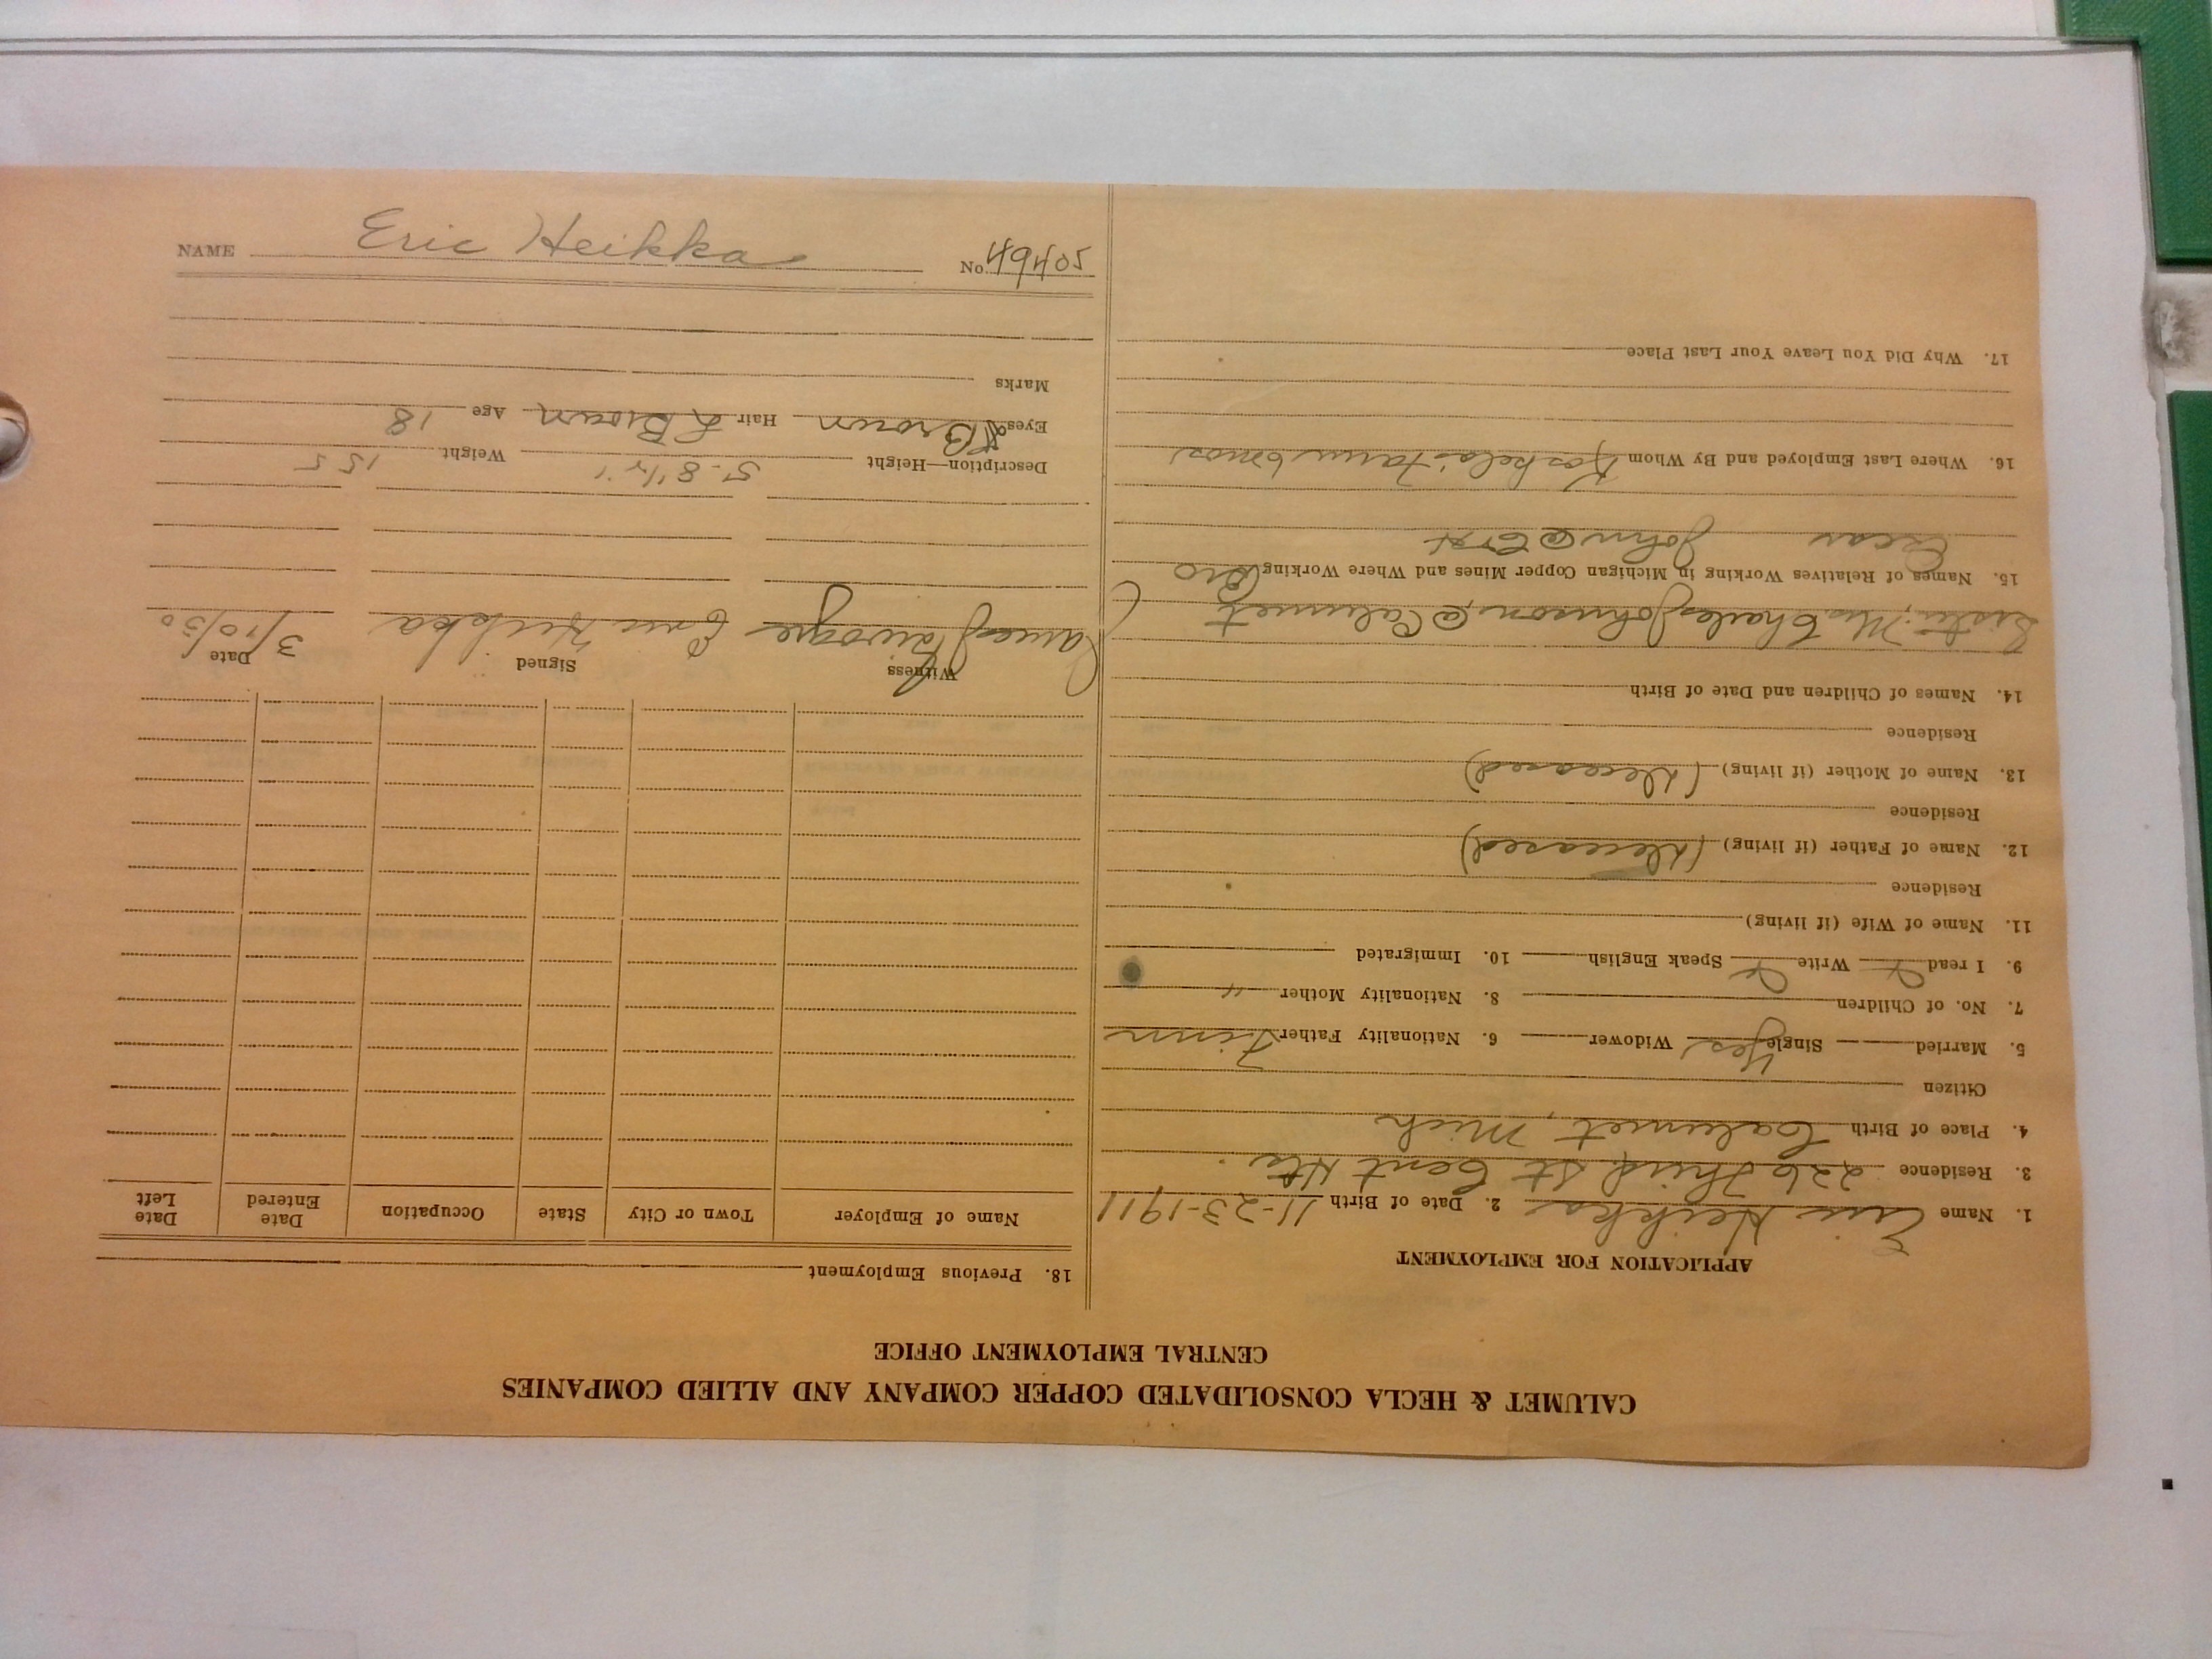 CALUMET & HECLA CONSOLIDATED COPPER COMPANY AND ALLIED COMPANIES
CENTRAL EMPLOYMENT OFFICE
APPLICATION FOR EMPLOYMENT
1. Name Eric Heikka 2. Date of Birth 11-23-1911
3. Residence 226 Third St Cent Hts
4. Place of Birth Calumet, Mich
Citizen
5. Married Single Yes Widower 6. Nationality Father Finn
7. No. of Children 8. Nationality Mother "
9. I read Write Speak English 10. Immigrated
11. Name of Wife (if living)
Residence
12. Name of Father (if living) (Deceased)
Residence
13. Name of Mother (if living) (Deceased)
Residence
14. Names of Children and Date of Birth
Sister, Mrs Charles Johnson, @ Calumet
15. Names of Relatives Working in Michigan Copper Mines and Where Working Bro
John @
16. Where Last Employed and By Whom Farm 6 mos
17. Why Did You Leave Your Last Place
18. Previous Employment
Name of Employer Town or City State Occupation Date Entered Date Left
Witness Signed Date
James Eric Heikka 3/10/30
Description—Height 5-8 1/2" Weight 155
Eyes Brown Hair L Brown Age 18
Marks
NAME Eric Heikka No 49405